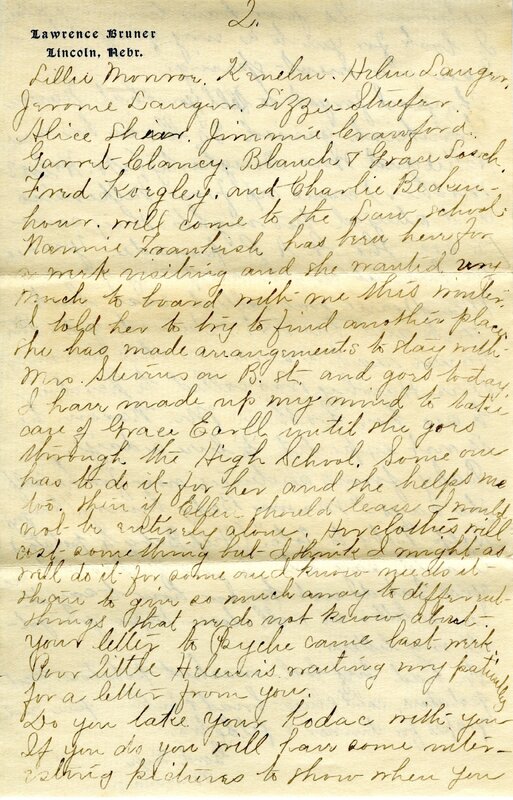 2.
Lawrence Bruner
Lincoln, Nebr.
Lillie Monroe, Kenelm. Helen Langer,
Jerome Langer, Lizzie Stiefer,
Alice Shier. Jimmie Crawford.
Garret Clancy. Blanch & Grace
Fred Koegley. and Charlie Becken-
hour. will come to the Law school.
Nannie Frankish has been here for
a week visiting and she wanted very
much to board with me this winter.
I told her to try to find another place
she has made arrangements to stay with
Mrs. Stevens on B. st. and goes today.
I have made up my mind to take
care of Grace Earll until she goes
through the High School. Some one
has to do it for her and she helps me
too. then if Ellen should leave I would
not be entirely alone. Her clothes will
cost something but I think I might as
well do it for some one I know needs it
than to give so much away to different
things that we do not know about.
Your letter to Psyche came last week.
Poor little Helen is waiting very patiently
for a letter from you.
Do you take your Kodac with you
If you do you will have some inter-
esting pictures to show when you